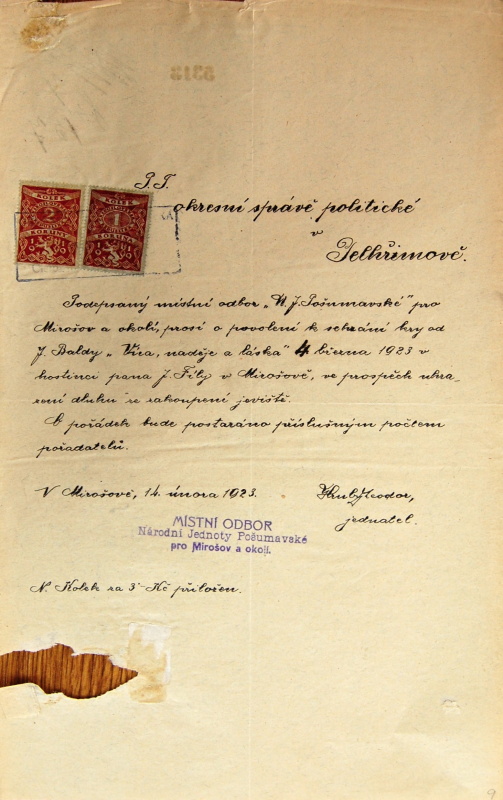 P. T.
okresní správě politické
v
Pelhřimově.
Podepsaný místní odbor „N. J. Pošumavské" pro
Mirošov a okolí, prosí o povolení k sehrání hry od
J. Baldy „Víra, naděje a láska" 4 března 1923 v
hostinci pana J. Fily v Mirošově, ve prospěch uhra-
zení dluhu ze zakoupení jeviště.
O pořádek bude postaráno příslušným počtem
pořadatelů.
V Mirošově, 14. února 1923.
Teodor,
jednatel.
MÍSTNÍ ODBOR
Národní Jednoty Pošumavské
pro Mirošov a okolí.
N. Kolek za 3 Kč přiložen.
KOLEK
2
KORUNY
KOLEK
1
KORUNA
9